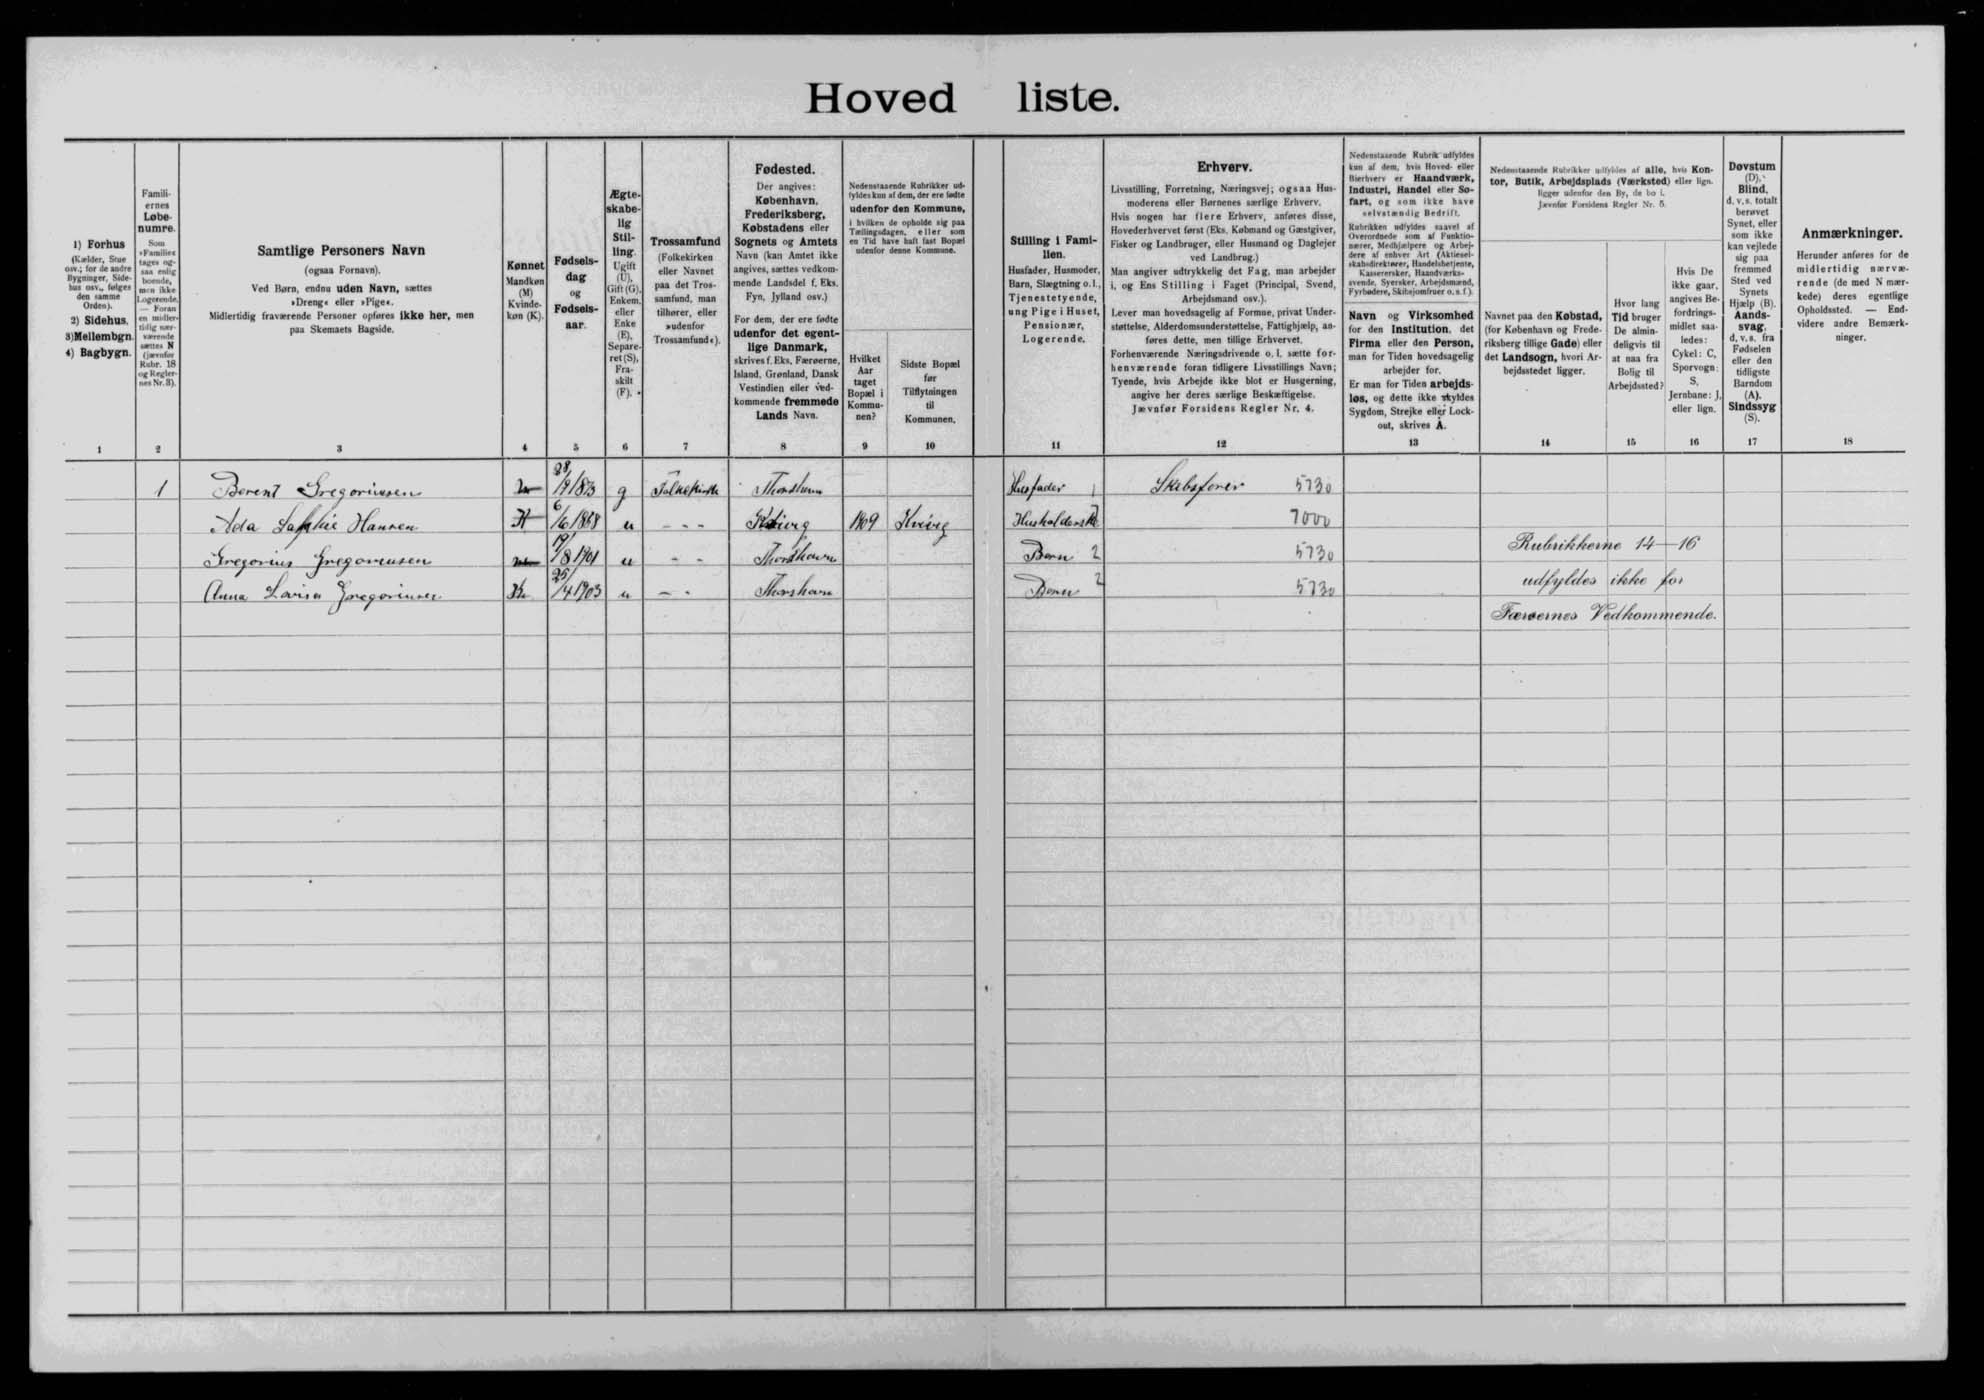 Hoved liste.
1) Forhus
(Kælder, Stue
osv.; for de andre
Bygninger, Side-
hus osv., følges
den samme
Orden).
2) Sidehus.
3) Mellembgn.
4) Bagbygn.
1
Famili-
ernes
Løbe-
numre.
Som
»Familie«
tages og-
saa enlig
boende,
men ikke
Logerende.
— Foran
en midler-
tidig nær-
værende
sættes N
(jævnfør
Rubr. 18
og Regler-
nes Nr. 3).
2
Samtlige Personers Navn
(ogsaa Fornavn).
Ved Børn, endnu uden Navn, sættes
»Dreng« eller »Pige«.
Midlertidig fraværende Personer opføres ikke her, men
paa Skemaets Bagside.
3
Kønnet
Mandkøn
(M)
Kvinde-
køn (K).
4
Fødsels-
dag
og
Fødsels-
aar.
5
Ægte-
skabe-
lig
Stil-
ling.
Ugift
(U),
Gift (G),
Enkem.
eller
Enke
(E),
Separe-
ret (S),
Fra-
skilt
(F).
6
Trossamfund
(Folkekirken
eller Navnet
paa det Tros-
samfund, man
tilhører, eller
»udenfor
Trossamfund«).
7
Fødested.
Der angives:
København,
Frederiksberg,
Købstadens eller
Sognets og Amtets
Navn (kan Amtet ikke
angives, sættes vedkom-
mende Landsdel f. Eks.
Fyn, Jylland osv.)
For dem, der ere fødte
udenfor det egent-
lige Danmark,
skrives f. Eks. Færøerne,
Island, Grønland, Dansk
Vestindien eller ved-
kommende fremmede
Lands Navn.
8
Nedenstaaende Rubrikker ud-
fyldes kun af dem, der ere fødte
udenfor den Kommune,
i hvilken de opholde sig paa
Tællingsdagen, eller som
en Tid have haft fast Bopæl
udenfor denne Kommune.
Hvilket
Aar
taget
Bopæl i
Kommu-
nen?
9
Sidste Bopæl
før
Tilflytningen
til
Kommunen.
10
Stilling i Fami-
lien.
Husfader, Husmoder,
Barn, Slægtning o. l.,
Tjenestetyende,
ung Pige i Huset,
Pensionær,
Logerende.
11
Erhverv.
Livsstilling, Forretning, Næringsvej; ogsaa Hus-
moderens eller Børnenes særlige Erhverv.
Hvis nogen har flere Erhverv, anføres disse,
Hovederhvervet først (Eks. Købmand og Gæstgiver,
Fisker og Landbruger, eller Husmand og Daglejer
ved Landbrug.)
Man angiver udtrykkelig det Fag, man arbejder
i, og Ens Stilling i Faget (Principal, Svend,
Arbejdsmand osv.).
Lever man hovedsagelig af Formue, privat Under-
støttelse, Alderdomsunderstøttelse, Fattighjælp, an-
føres dette, men tillige Erhvervet.
Forhenværende Næringsdrivende o. l. sætte for-
henværende foran tidligere Livsstillings Navn;
Tyende, hvis Arbejde ikke blot er Husgerning,
angive her deres særlige Beskæftigelse.
Jævnfør Forsidens Regler Nr. 4.
12
Nedenstaaende Rubrik udfyldes
kun af dem, hvis Hoved- eller
Bierhverv er Haandværk,
Industri, Handel eller Sø-
fart, og som ikke have
selvstændig Bedrift.
Rubrikken udfyldes saavel af
Overordnede som af Funktio-
nærer, Medhjælpere og Arbej-
dere af enhver Art (Aktiesel-
skabsdirektører, Handelsbetjente,
Kassererske, Haandværks-
svende, Syersker, Arbejdsmænd,
Fyrbødere, Skibsjomfruer o. s. f.).
Navn og Virksomhed
for den Institution, det
Firma eller den Person,
man for Tiden hovedsagelig
arbejder for.
Er man for Tiden arbejds-
løs, og dette ikke skyldes
Sygdom, Strejke eller Lock-
out, skrives A.
13
Nedenstaaende Rubrikker udfyldes af alle, hvis Kon-
tor, Butik, Arbejdsplads (Værksted) eller lign.
ligger udenfor den By, de bo i.
Jævnfør Forsidens Regler Nr. 5.
Navnet paa den Købstad,
(for København og Frede-
riksberg tillige Gade) eller
det Landsogn, hvori Ar-
bejdsstedet ligger.
14
Hvor lang
Tid bruger
De almin-
deligvis til
at naa fra
Bolig til
Arbejdssted?
15
Hvis De
ikke gaar,
angives Be-
fordrings-
midlet saa-
ledes:
Cykel: C,
Sporvogn:
S,
Jernbane: J,
eller lign.
16
Døvstum
(D),
Blind,
d. v. s. totalt
berøvet
Synet, eller
som ikke
kan vejlede
sig paa
fremmed
Sted ved
Synets
Hjælp (B).
Aands-
svag,
d. v. s. fra
Fødselen
eller den
tidligste
Barndom
(A).
Sindssyg
(S).
17
Anmærkninger.
Herunder anføres for de
midlertidig nærvæ-
rende (de med N mær-
kede) deres egentlige
Opholdssted. — End-
videre andre Bemærk-
ninger.
18
1 Berent Gregoriussen 28/9 1873 g Folkekirke Thorshavn Husfader 1 Skibsfører 5730
Ada Sophie Hansen K 6/6 1868 u - - - Kvivig 1909 Kvivig Husholderske 7 7000
Gregorius Gregoriussen 19/8 1901 u - - Thorshavn Børn 2 5730
Anna Lovisa Gregoriusen 25/4 1903 u - - Thorshavn Børn 2 5730
Rubrikkerne 14—16
udfyldes ikke for
Færøernes Vedkommende.